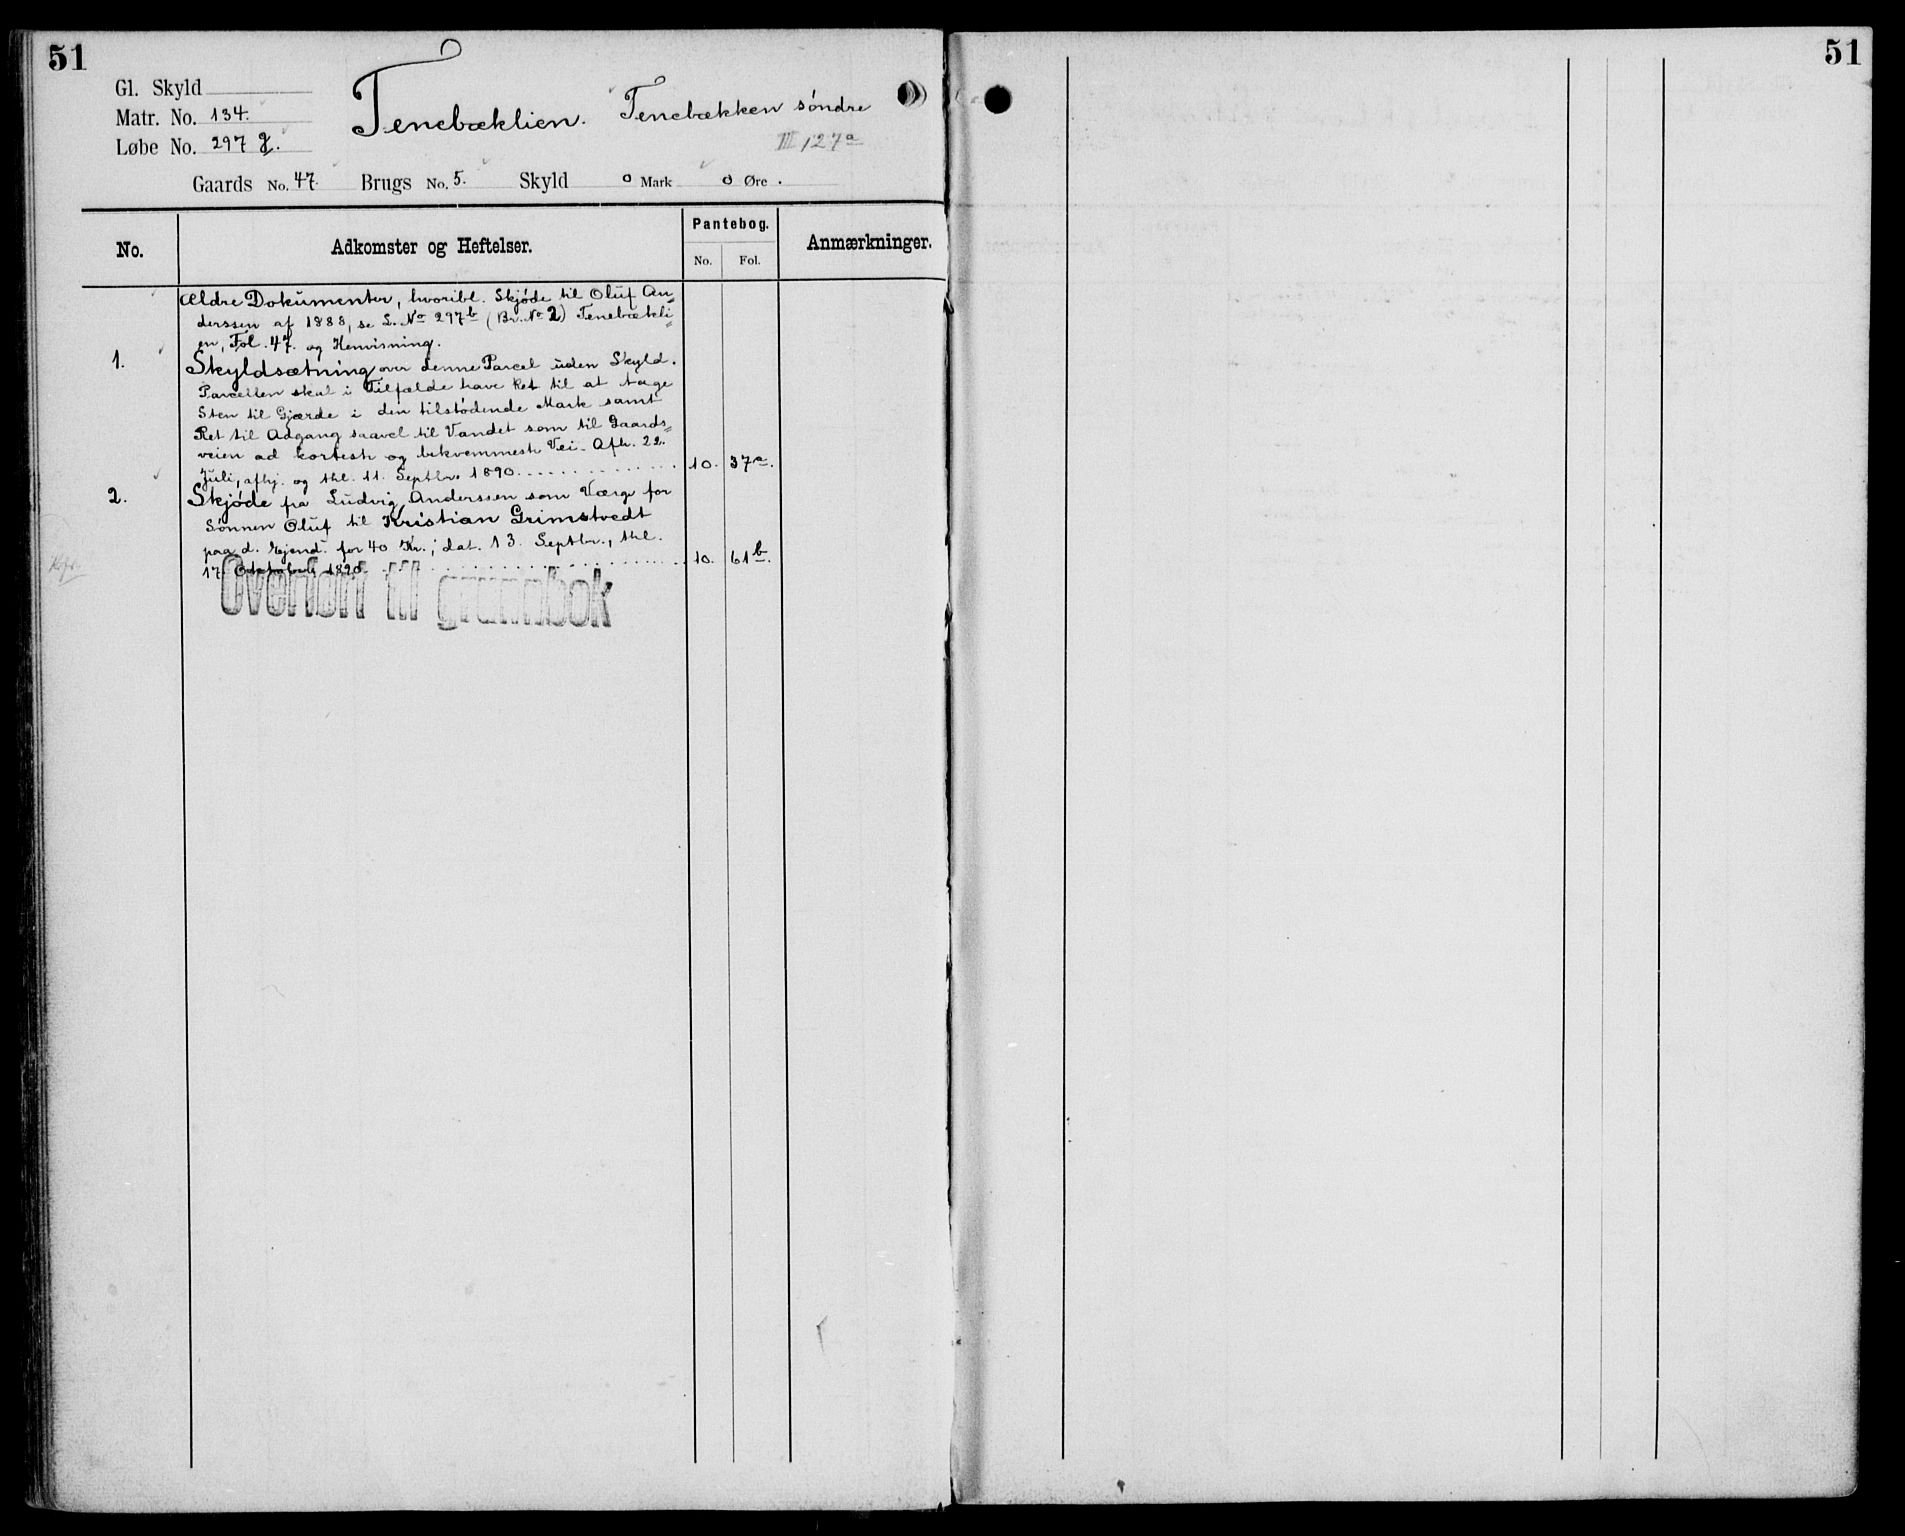 51
51
Gl. Skyld
Matr. No. 134.
Løbe No. 297 g.
Tenebæklien. Tenebækken søndre
III 127a
Gaards No. 47. Brugs No. 5. Skyld 0 Mark 0 Øre.
No. Adkomster og Heftelser. Pantebog. No. Fol. Anmærkninger.
Ældre Dokumenter, hvoribl. Skjøde til Oluf An=
derssen af 1888, se L. No 297b (Br. No 2) Tenebækli=
en, Fol. 47. og Henvisning.
1. Skyldsætning over denne Parcel uden Skyld.
Parcellen skal i Tilfælde have Ret til at tage
Sten til Gjærde i den tilstødende Mark samt
Ret til Adgang saavel til Vandet som til Gaards=
veien ad korteste og bekvemmeste Vei. Afh. 22.
Juli, afhj. og thl. 11. Septbr. 1890. 10. 37a.
2. Skjøde fra Ludvig Anderssen som Værge for
Sønnen Oluf til Kristian Grimstvedt
paa d. Ejend. for 40 Kr.; dat. 13. Septbr., thl.
17. Oktober 1890. 10. 61b.
Overført til grunnbok